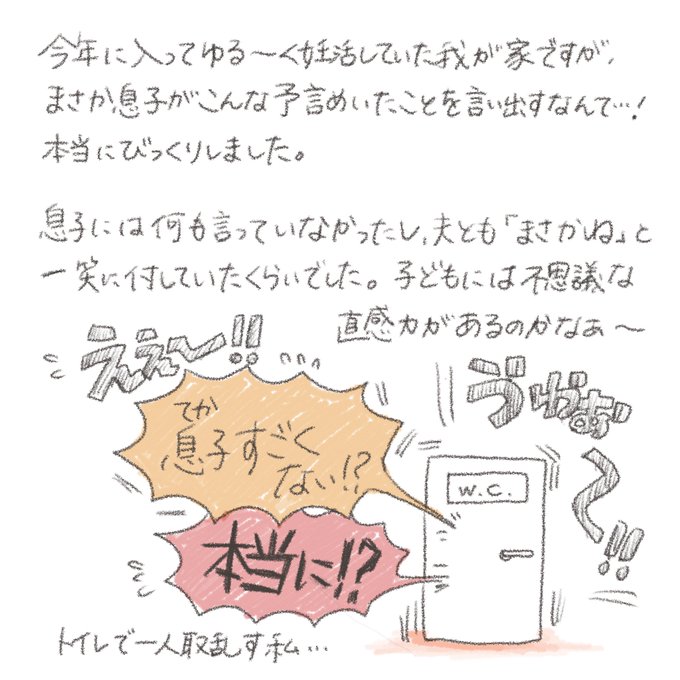 今年に入ってゆる〜く妊活していた我が家ですが、
まさか息子がこんな予言めいたことを言い出すなんて…!
本当にびっくりしました。
息子には何も言っていなかったし、夫とも「まさかね」と
一笑に付していたくらいでした。子どもには不思議な
直感力があるのかなぁ〜
ええ〜!!
うわぁぁ〜!!
てか
息子すごく
ない!?
W.C.
本当に!?
トイレで一人取乱す私…